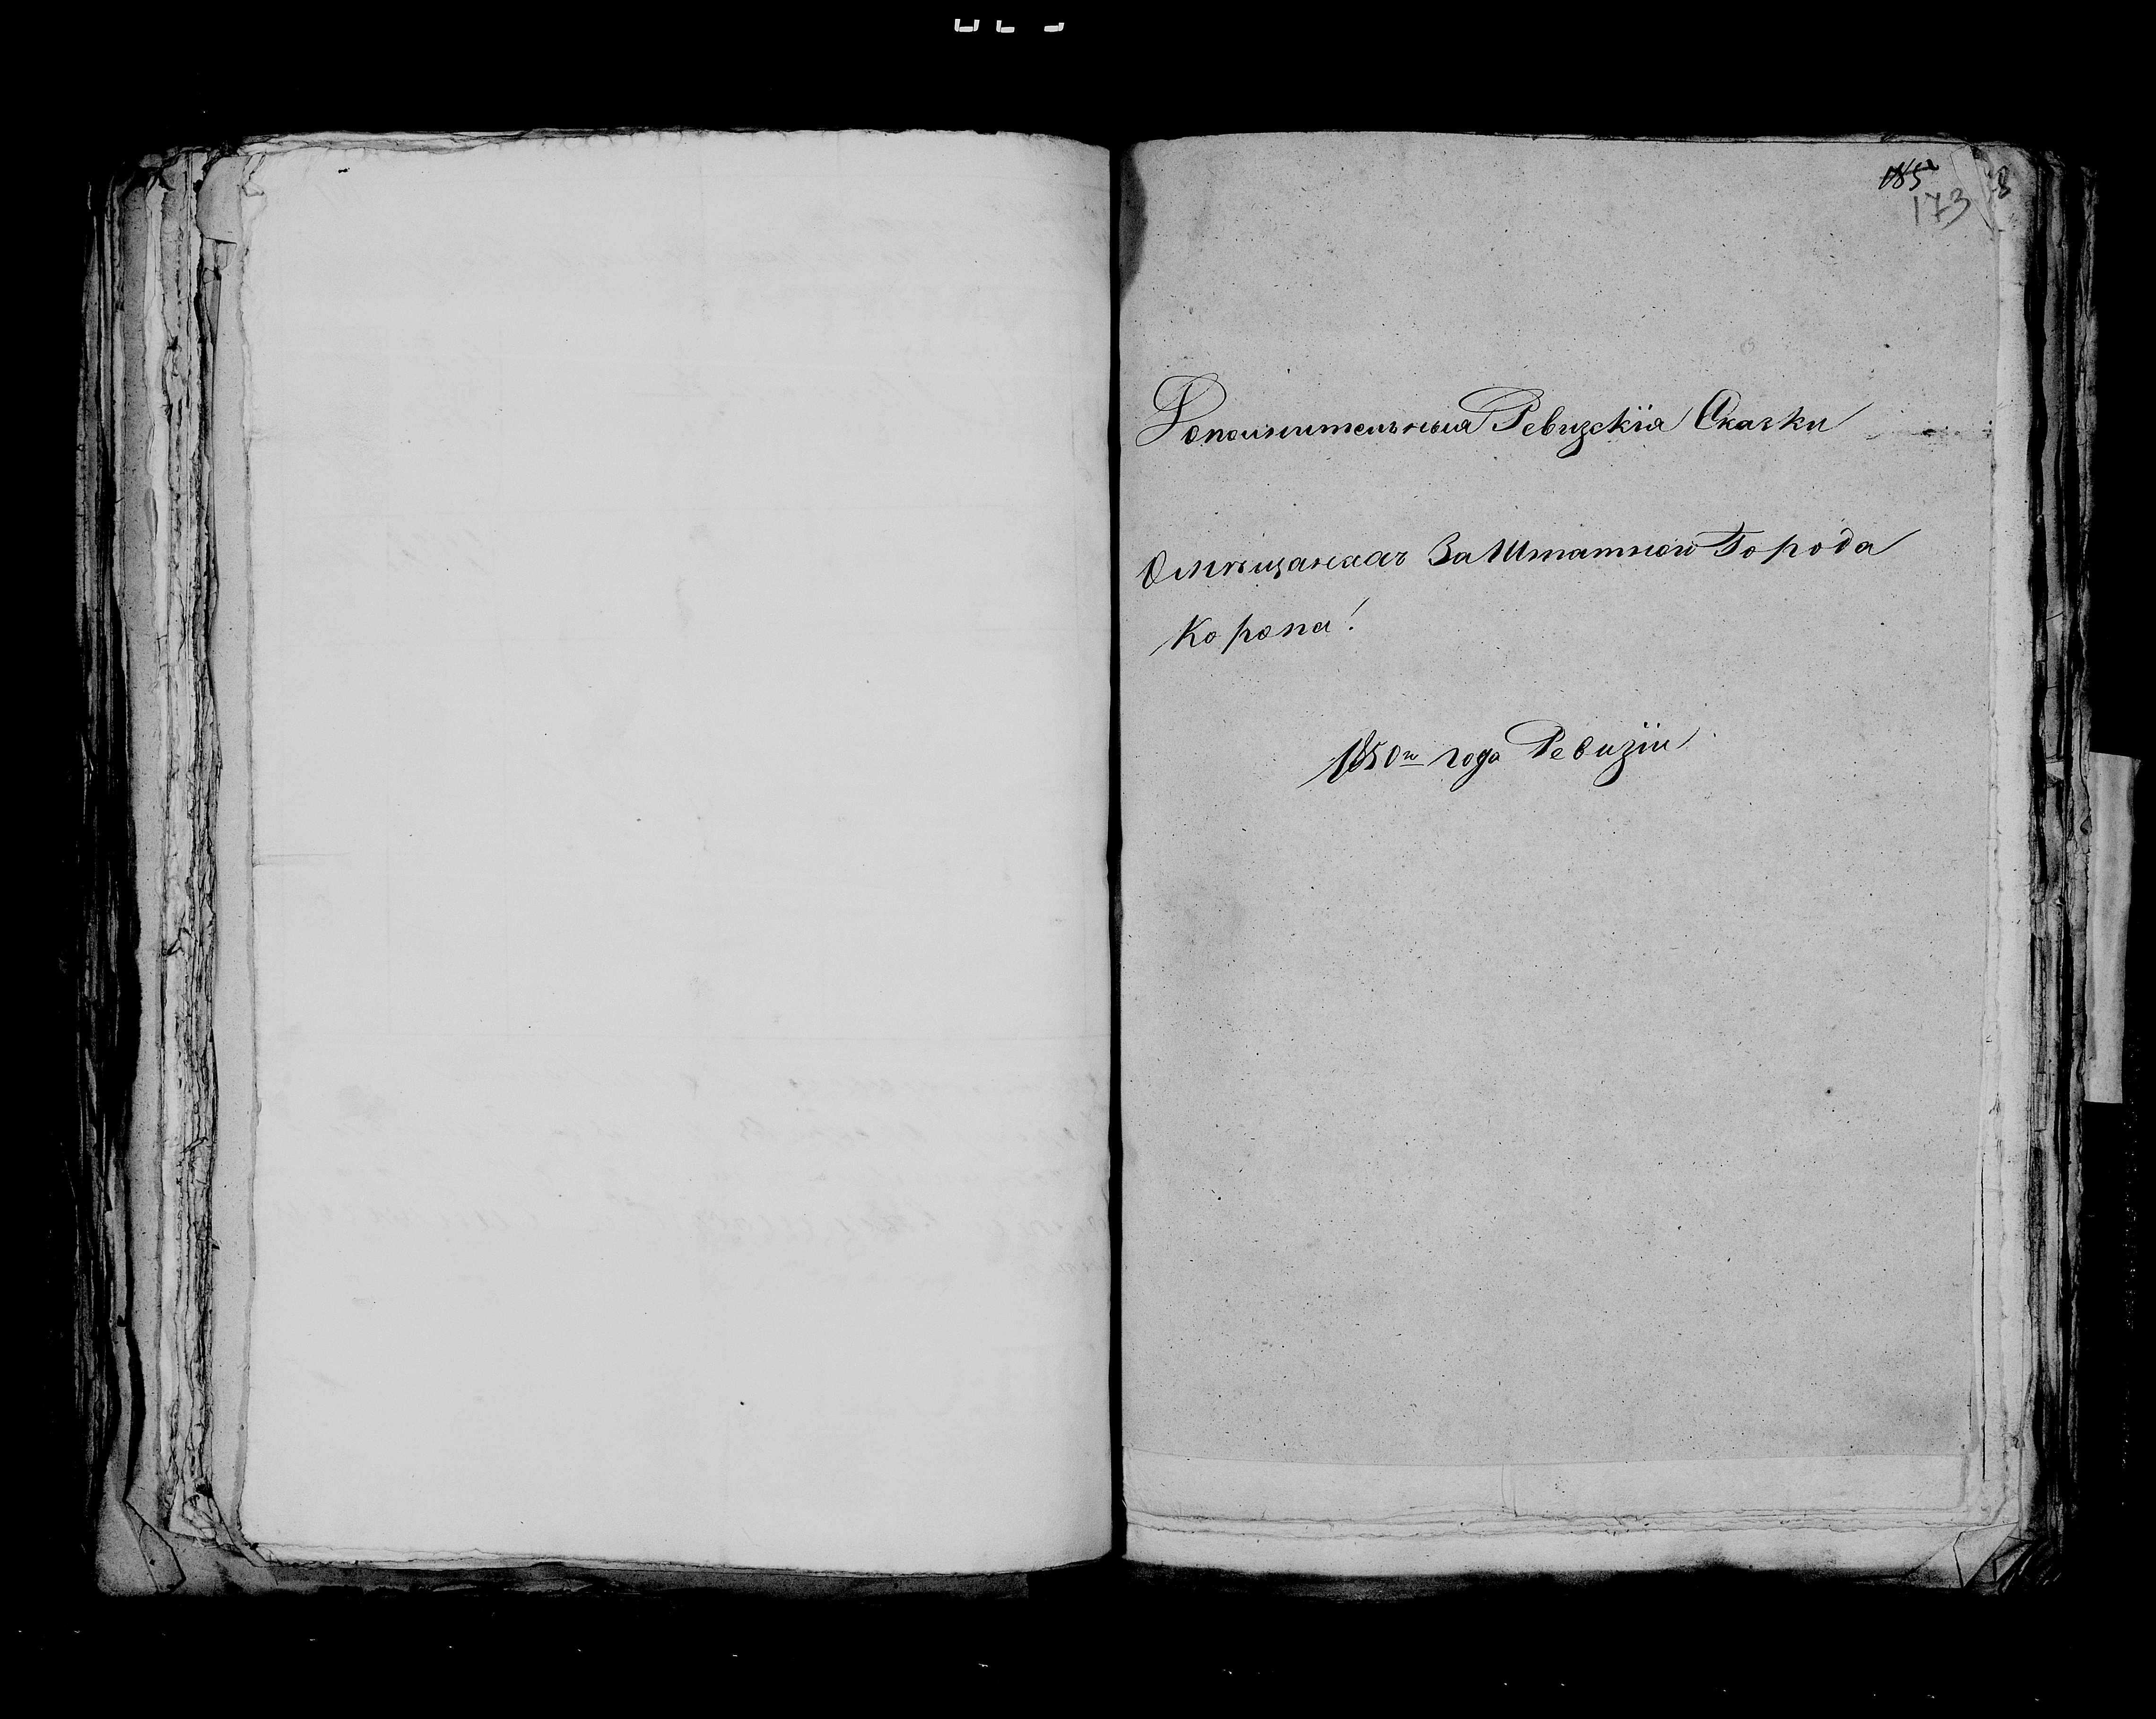 185
173
Дополнительныя Ревизскія Сказки
О мѣщанахъ Заштатного Города
Коропа!
1850го года Ревизіи